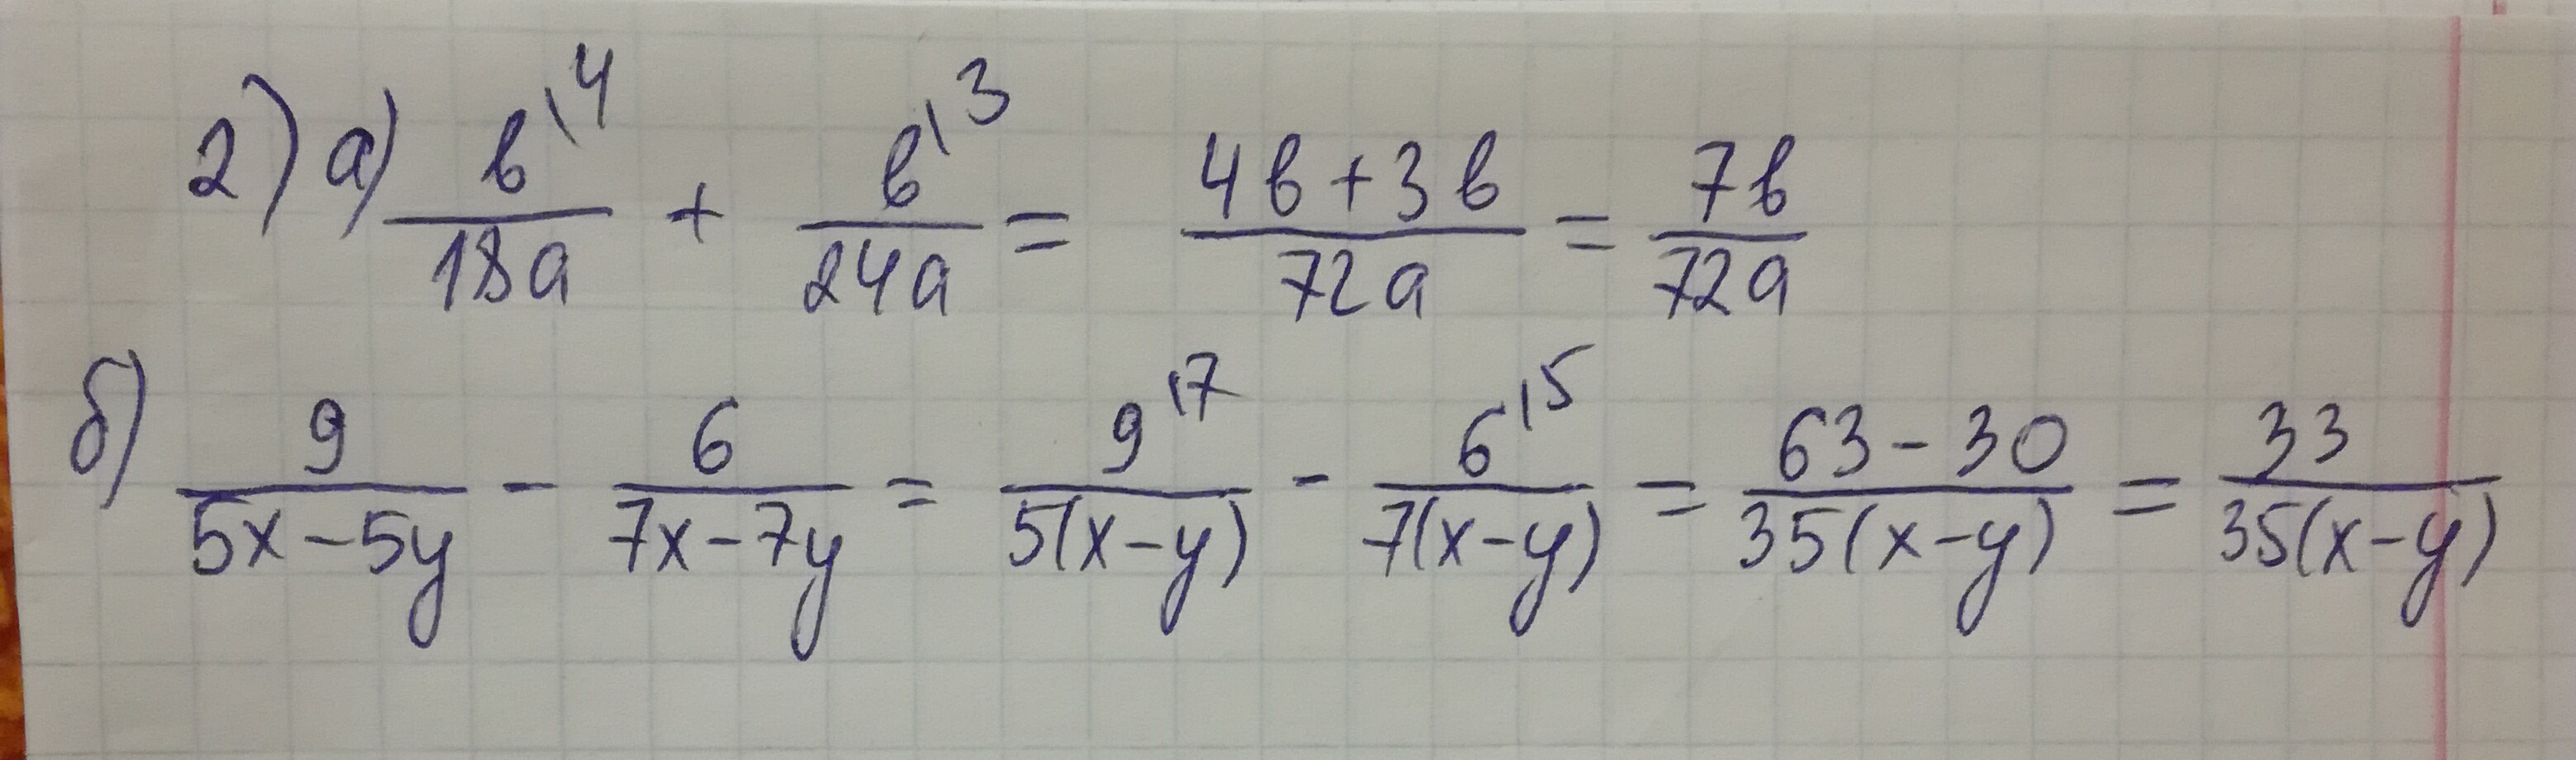 2) а) в\4/18а + в\3/24а = 4в+3в/72а = 7в/72а
б) 9/5x-5y - 6/7x-7y = 9\7/5(x-y) - 6\5/7(x-y) = 63-30/35(x-y) = 33/35(x-y)